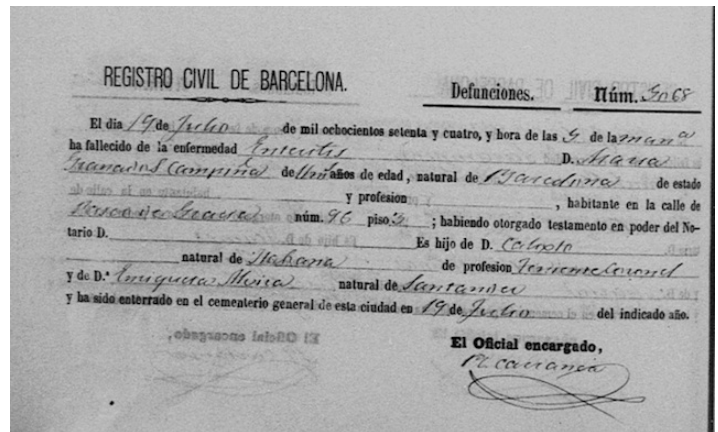 REGISTRO CIVIL DE BARCELONA.
Defunciones. Núm. 3068
El dia 19 de Julio de mil ochocientos setenta y cuatro, y hora de las de la manª
ha fallecido de la enfermedad Enteritis D. Maria
Granados Campiña de años de edad, natural de Barcelona de estado
y profesion , habitante en la calle de
Paseo de Gracia núm. 96 piso 3 ; habiendo otorgado testamento en poder del No-
tario D. Es hijo de D. Calixto
natural de Habana de profesion Teniente Coronel
y de D.ª Enriqueta natural de Santander
y ha sido enterrado en el cementerio general de esta ciudad en 19 de Julio del indicado año.
El Oficial encargado,